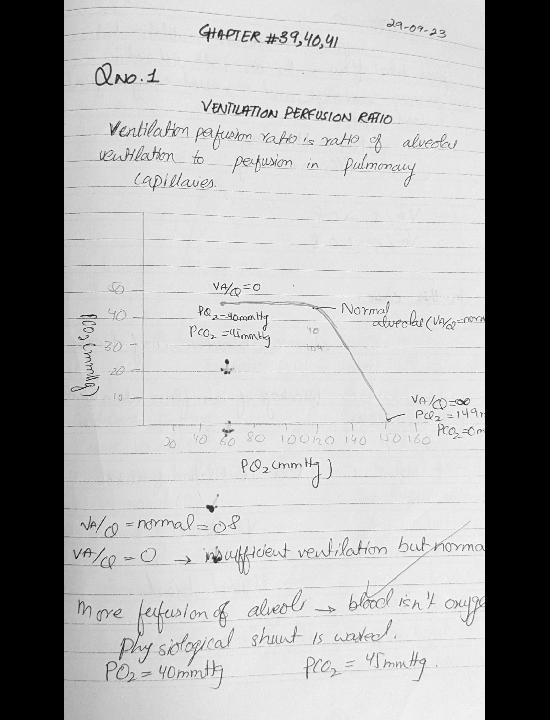 29-09-23
CHAPTER #39,40,41
QNO.1
VENTILATION PERFUSION RATIO
Ventilation perfusion ratio is ratio of alveolar
ventilation to perfusion in pulmonary
capillaries.
50
40
30
20
10
PCO2 (mmHg)
VA/Q=0
PO2=40mmHg
PCO2=45mmHg
Normal
alveolar (VA/Q=norm
40
104
VA/Q=∞
PO2=149m
PCO2=0m
20 40 60 80 100 120 140 150 160
PO2 (mmHg)
VA/Q = normal = 0.8
VA/Q = 0 → insufficient ventilation but norma
More perfusion of alveoli → blood isn't oxyge
Physiological shunt is wasted.
PO2 = 40mmHg PCO2 = 45mmHg.